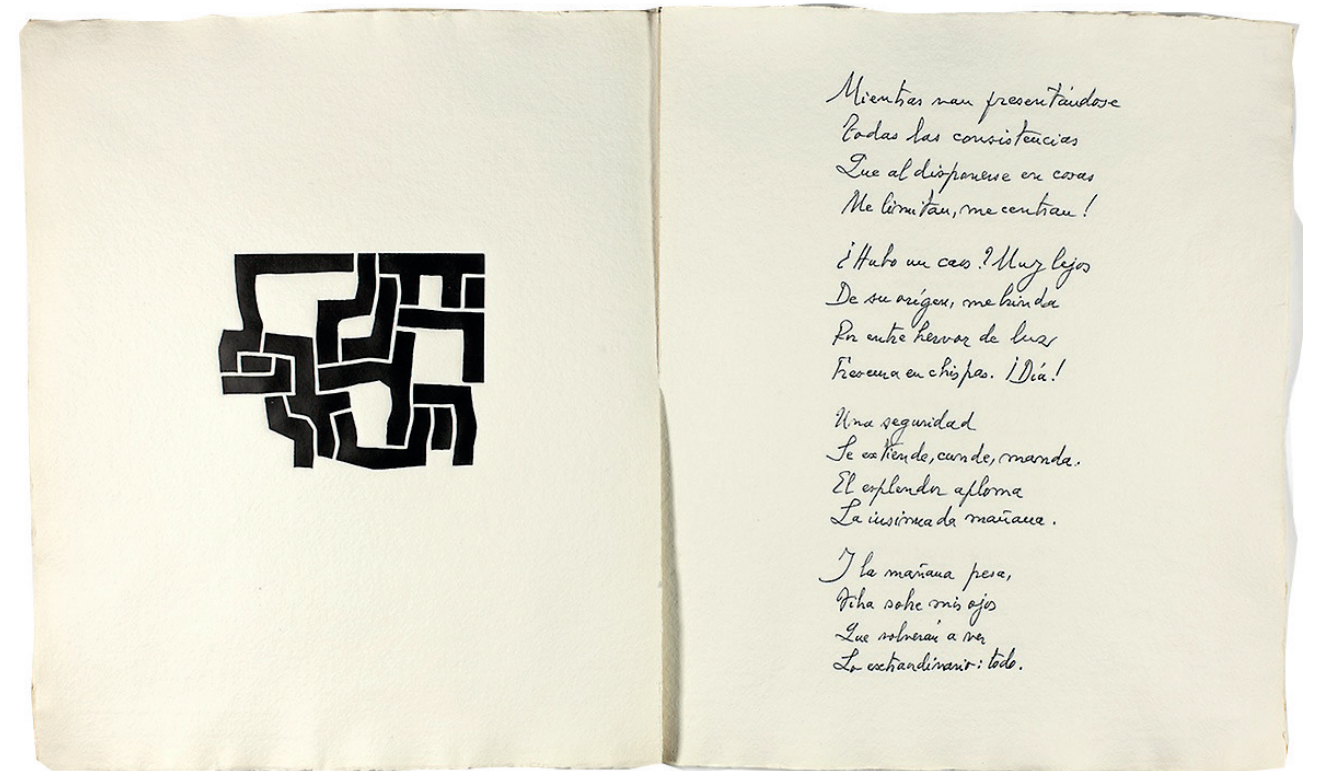 Mientras van presentándose
Todas las consistencias
Que al disponerse en cosas
Me limitan, me centran!
¿Hubo un caos? Muy lejos
De su origen, me brinda
Por entre hervor de luz
Frescura en chispas. ¡Día!
Una seguridad
Se extiende, cunde, manda.
El esplendor aploma
La insinuada mañana.
Y la mañana pesa,
Vibra sobre mis ojos
Que volverán a ver
Lo extraordinario: todo.